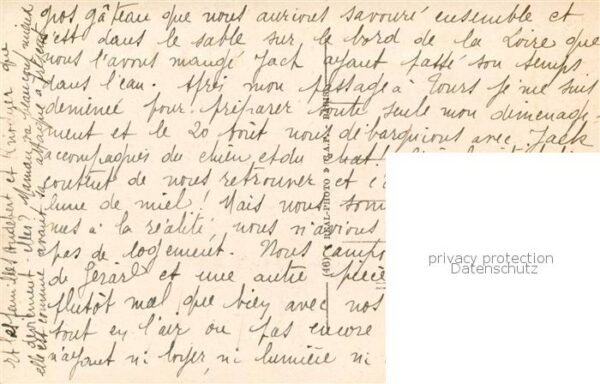 gros gâteau que nous aurions savouré ensemble et
c'est dans le sable sur le bord de la Loire que
nous l'avons mangé Jack ayant passé son temps
dans l'eau. Après mon passage à Tours je me suis
démenée pour préparer toute seule mon déménage-
ment et le 20 Août nous débarquions avec Jack
accompagnés du chien et du chat
content de nous retrouver et c'é
lune de miel ! Mais nous som
mes à la réalité, nous n'avions
pas de logement. Nous camp
de Gérard et une autre pièce
plutôt mal que bien avec nos
tout en l'air ou pas encore
n'ayant ni loyer, ni lumière ni
Et les familles Audebert et que
deviennent elles? Maman va beaucoup mieux
elle est comme avant sa attaque
(46) REAL-PHOTO C.A.P. PARIS
privacy protection
Datenschutz